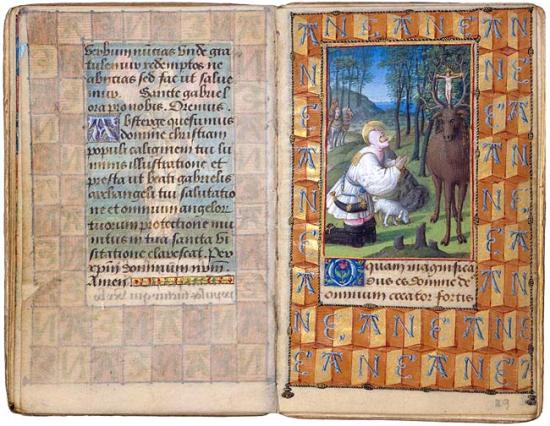 verbum nuncias unde gra
tulemur redemptos ne
abiicias sed fac ut salue
mur. Sancte gabriel
ora pro nobis. Oremus.
Absterge quesumus
domine christiani
populi caliginem tui lu
minis illustratione et
presta ut beati gabrielis
archangeli tui salutatio
ne et omnium angelor
tuorum protectione mu
nitus in tua sancta vi
sitatione clarescat. Per
xpm dominum nrm.
Amen.
A N E A N E A N
O quam magnifica
dus es domine de'
omnium creator fortis
E A N E A N E
E A N E A N E
29